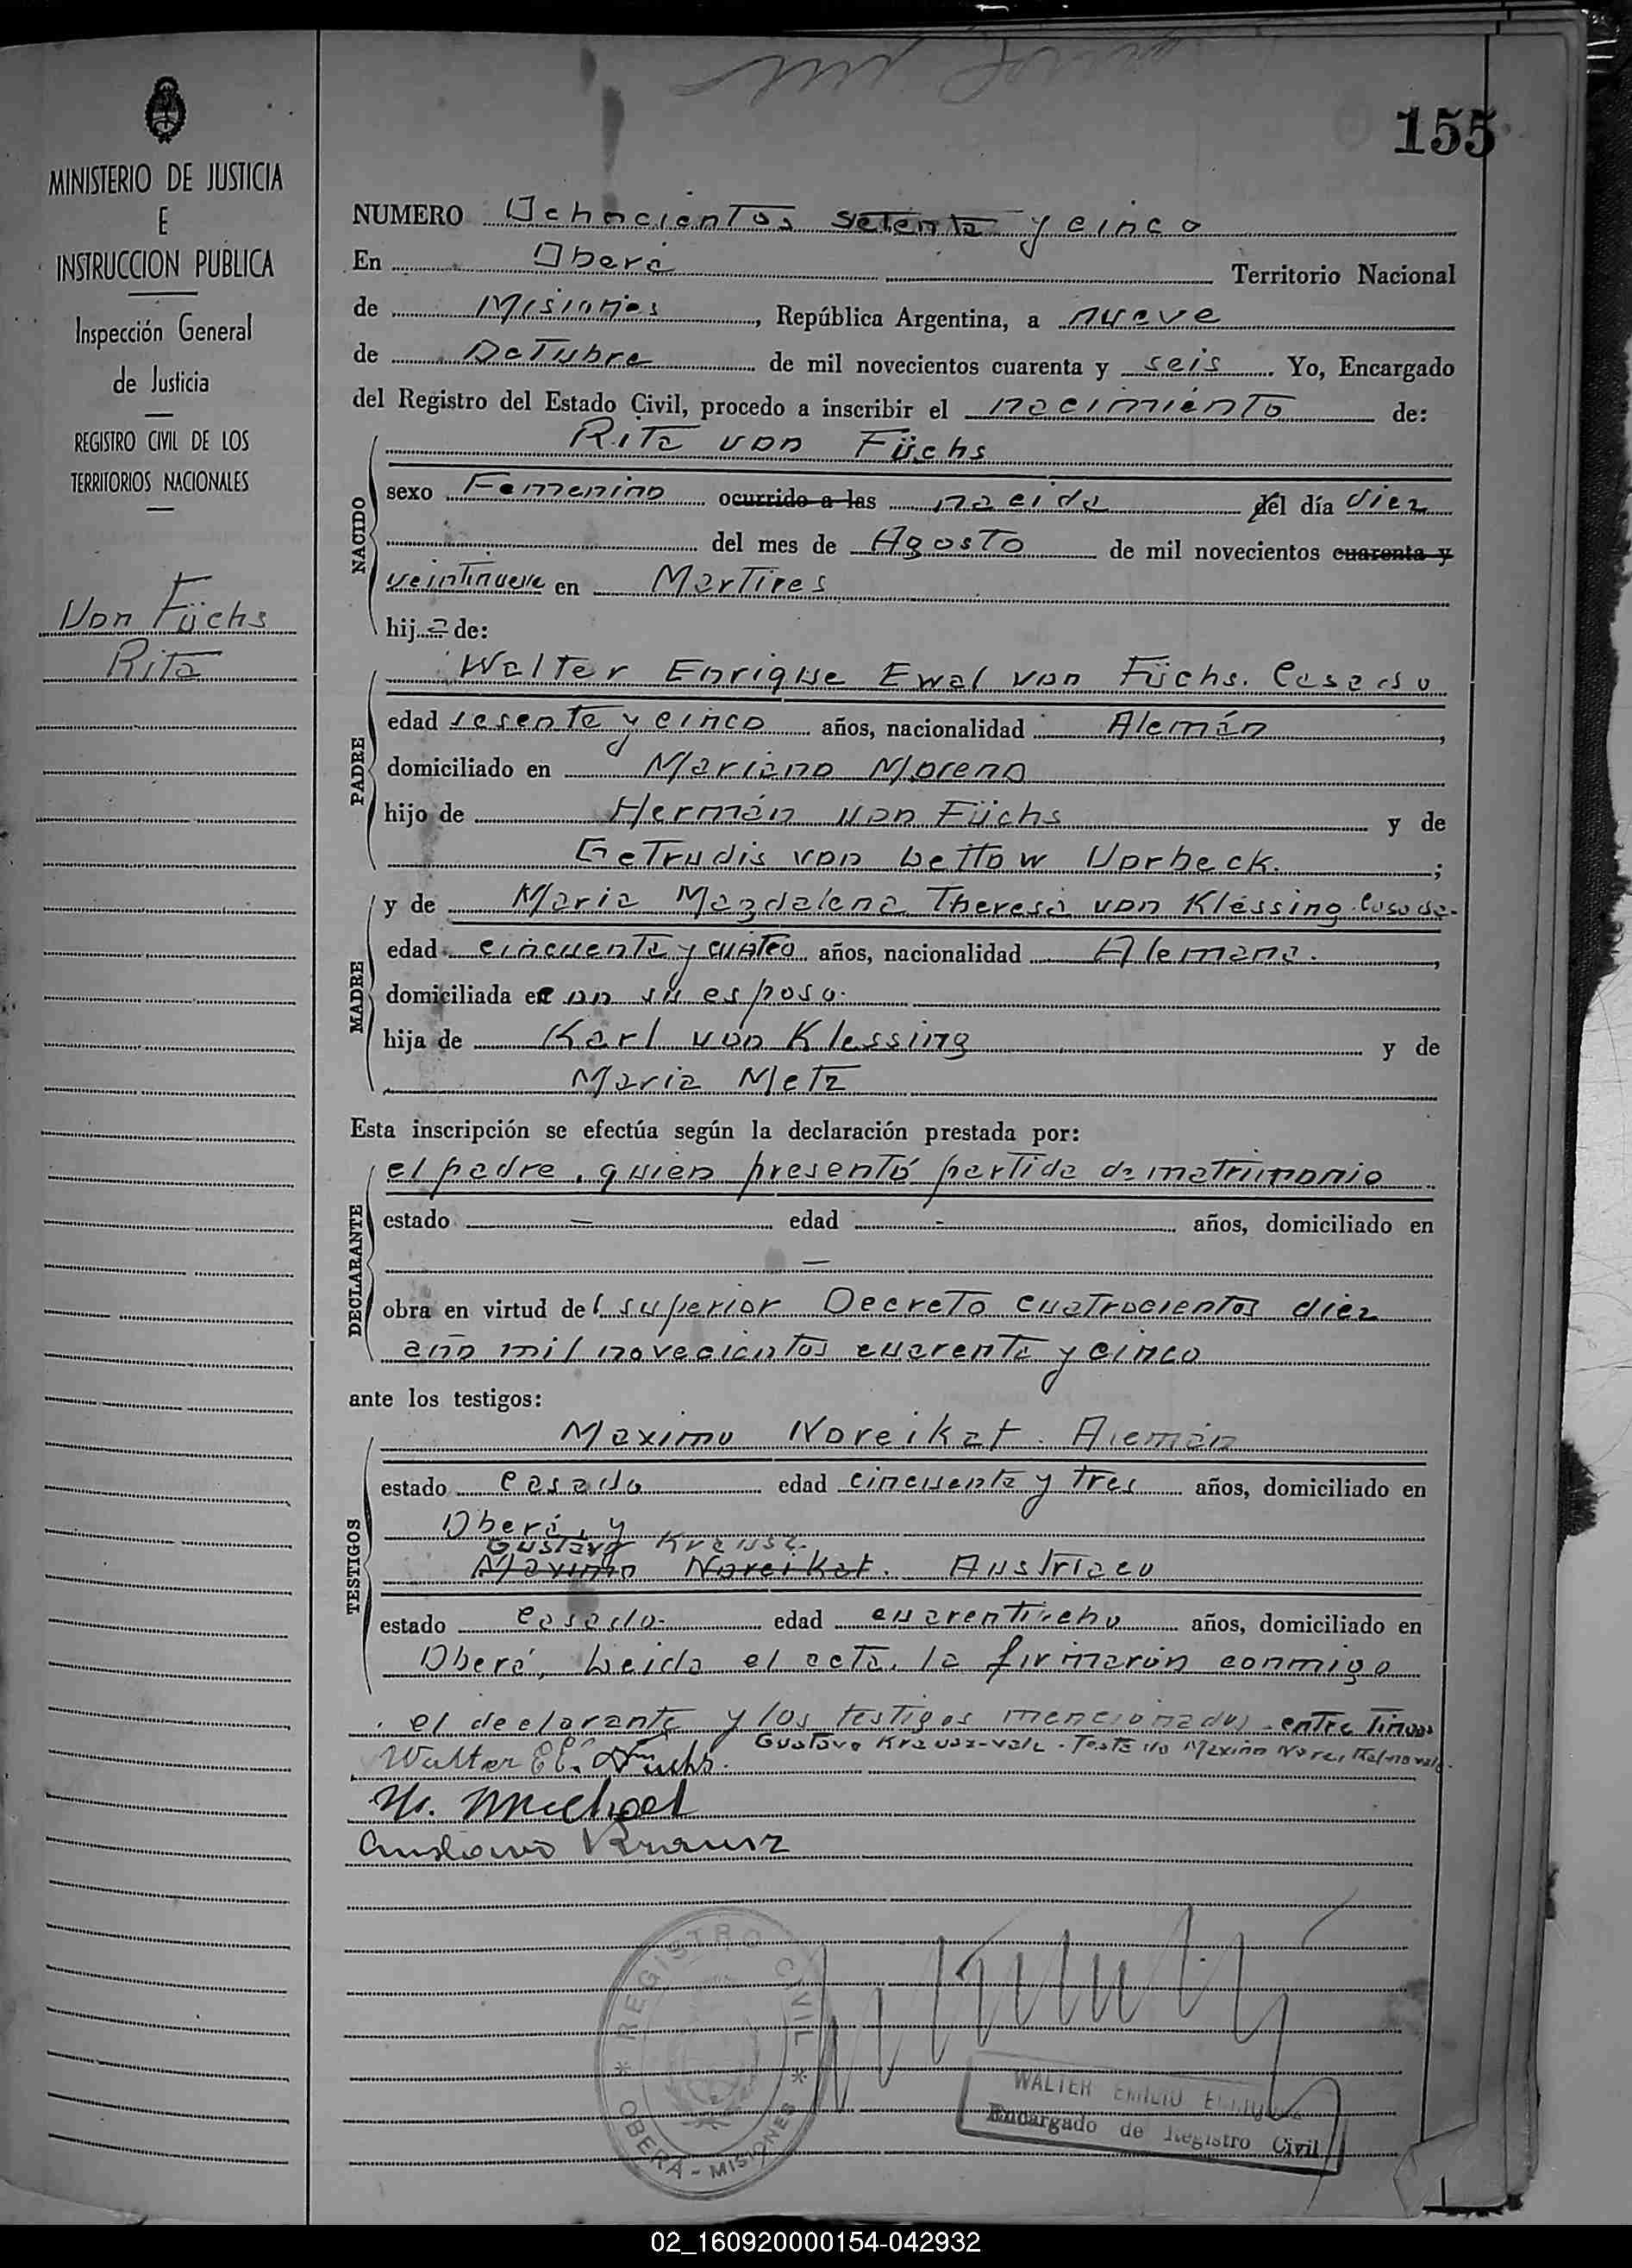 155
MINISTERIO DE JUSTICIA
E
INSTRUCCION PUBLICA
Inspección General
de Justicia
REGISTRO CIVIL DE LOS
TERRITORIOS NACIONALES
Von Füchs
Rita
NUMERO Ochocientos setenta y cinco
En Oberá Territorio Nacional
de Misiones, República Argentina, a nueve
de Octubre de mil novecientos cuarenta y seis. Yo, Encargado
del Registro del Estado Civil, procedo a inscribir el nacimiento de:
NACIDO
Rita von Füchs
sexo Femenino ocurrido a las nacida del día diez
del mes de Agosto de mil novecientos cuarenta y
veintinueve en Martires
hija de:
PADRE
Walter Enrique Ewal von Füchs. Casado
edad sesenta y cinco años, nacionalidad Alemán,
domiciliado en Mariano Moreno
hijo de Hermán von Füchs y de
Getrudis von Lettow Vorbeck. ;
MADRE
y de Maria Magdalena Theresa von Klessing casada-
edad cincuenta y cuatro años, nacionalidad Alemana. ,
domiciliada en con su esposo.
hija de Karl von Klessing y de
Maria Metz
Esta inscripción se efectúa según la declaración prestada por:
DECLARANTE
el padre, quien presentó partida de matrimonio
estado — edad - años, domiciliado en
—
obra en virtud del superior Decreto cuatrocientos diez
año mil novecientos cuarenta y cinco
ante los testigos:
TESTIGOS
Maximo Noreikat. Alemán
estado casado edad cincuenta y tres años, domiciliado en
Oberá, y
Gustavo Krausz.
Maximo Noreikat. Austriaco
estado casado- edad cuarentiocho años, domiciliado en
Oberá, Leida el acta, la firmarón conmigo
el declarante y los testigos mencionados - entre lineas
Gustavo Krausz-vale - Testado Maximo Noreikat-no vale.
Walter E.E. von Fuchs.
Gustavo Krausz
REGISTRO CIVIL
* OBERA - MISIONES *
WALTER EMILIO
Encargado de Registro Civil
02_160920000154-042932